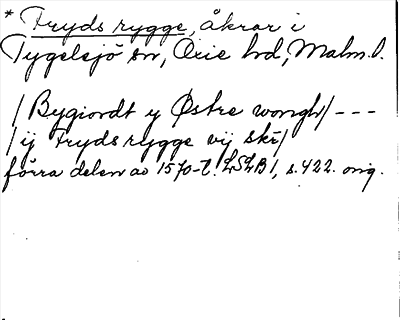 * Fryds rygge, åkrar i
Tygelsjö sn, Oxie hd, Malm. l.
/ Bygiordt y Østre wongh / - - -
/ ij Fryds rygge vij skr /
förra delen av 1570-t. LSLB 1, s. 422. orig.